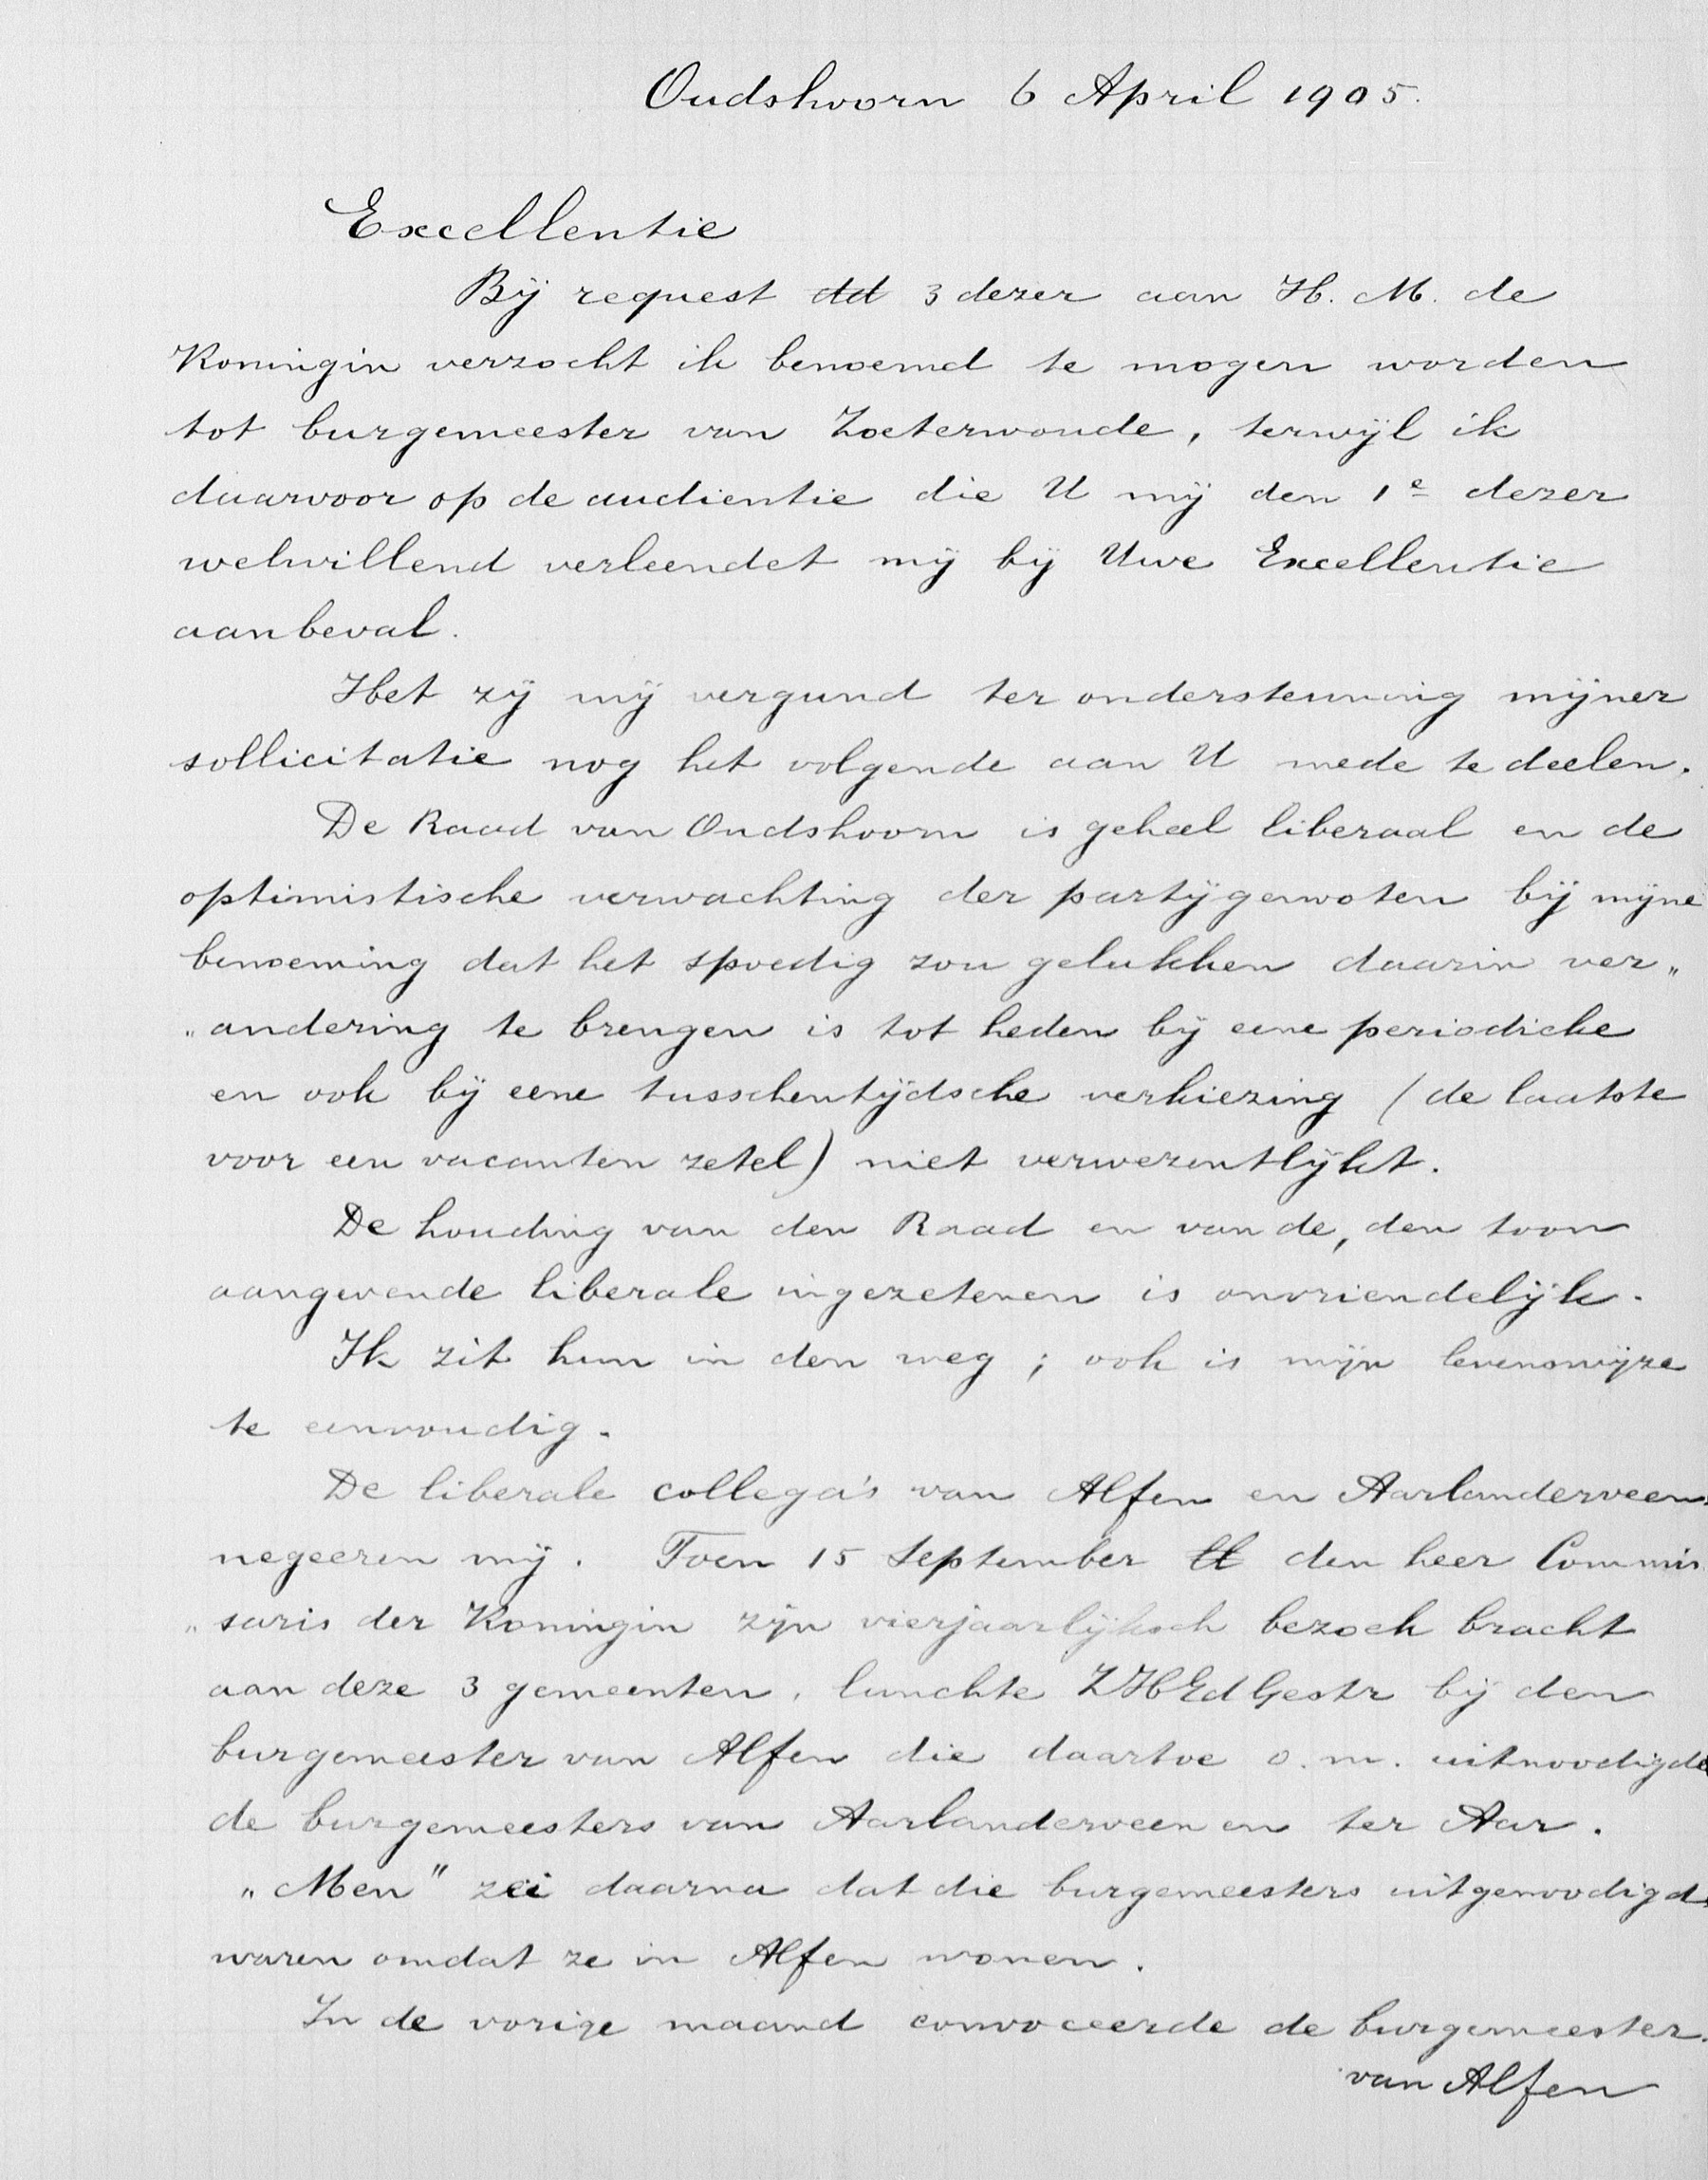 Oudshoorn 6 April 1905.
Excellentie
Bij request dd 3 dezer aan H. M. de
Koningin verzocht ik benoemd te mogen worden
tot burgemeester van Zoeterwoude, terwijl ik
daarvoor op de audientie die U mij den 1e dezer
welwillend verleendet mij bij Uwe Excellentie
aanbeval.
Het zij mij vergund ter ondersteuning mijner
sollicitatie nog het volgende aan U mede te deelen.
De Raad van Oudshoorn is geheel liberaal en de
optimistische verwachting der partijgenooten bij mijne
benoeming dat het spoedig zou gelukken daarin ver„
„andering te brengen is tot heden bij eene periodieke
en ook bij eene tusschentijdsche verkiezing (de laatste
voor een vacanten zetel) niet verwezentlijkt.
De houding van den Raad en van de, den toon
aangevende liberale ingezetenen is onvriendelijk.
Ik zit hun in den weg; ook is mijn levenswijze
te eenvoudig.
De liberale collega's van Alfen en Aarlanderveen
negeeren mij. Toen 15 September ll den heer Commis
„saris der Koningin zijn vierjaarlijksch bezoek bracht
aan deze 3 gemeenten, lunchte ZHEdGestr bij den
burgemeester van Alfen die daartoe o.m. uitnoodigde
de burgemeesters van Aarlanderveen en ter Aar.
„Men" zei daarna dat die burgemeesters uitgenoodigd
waren omdat ze in Alfen wonen.
In de vorige maand convoceerde de burgemeester
van Alfen